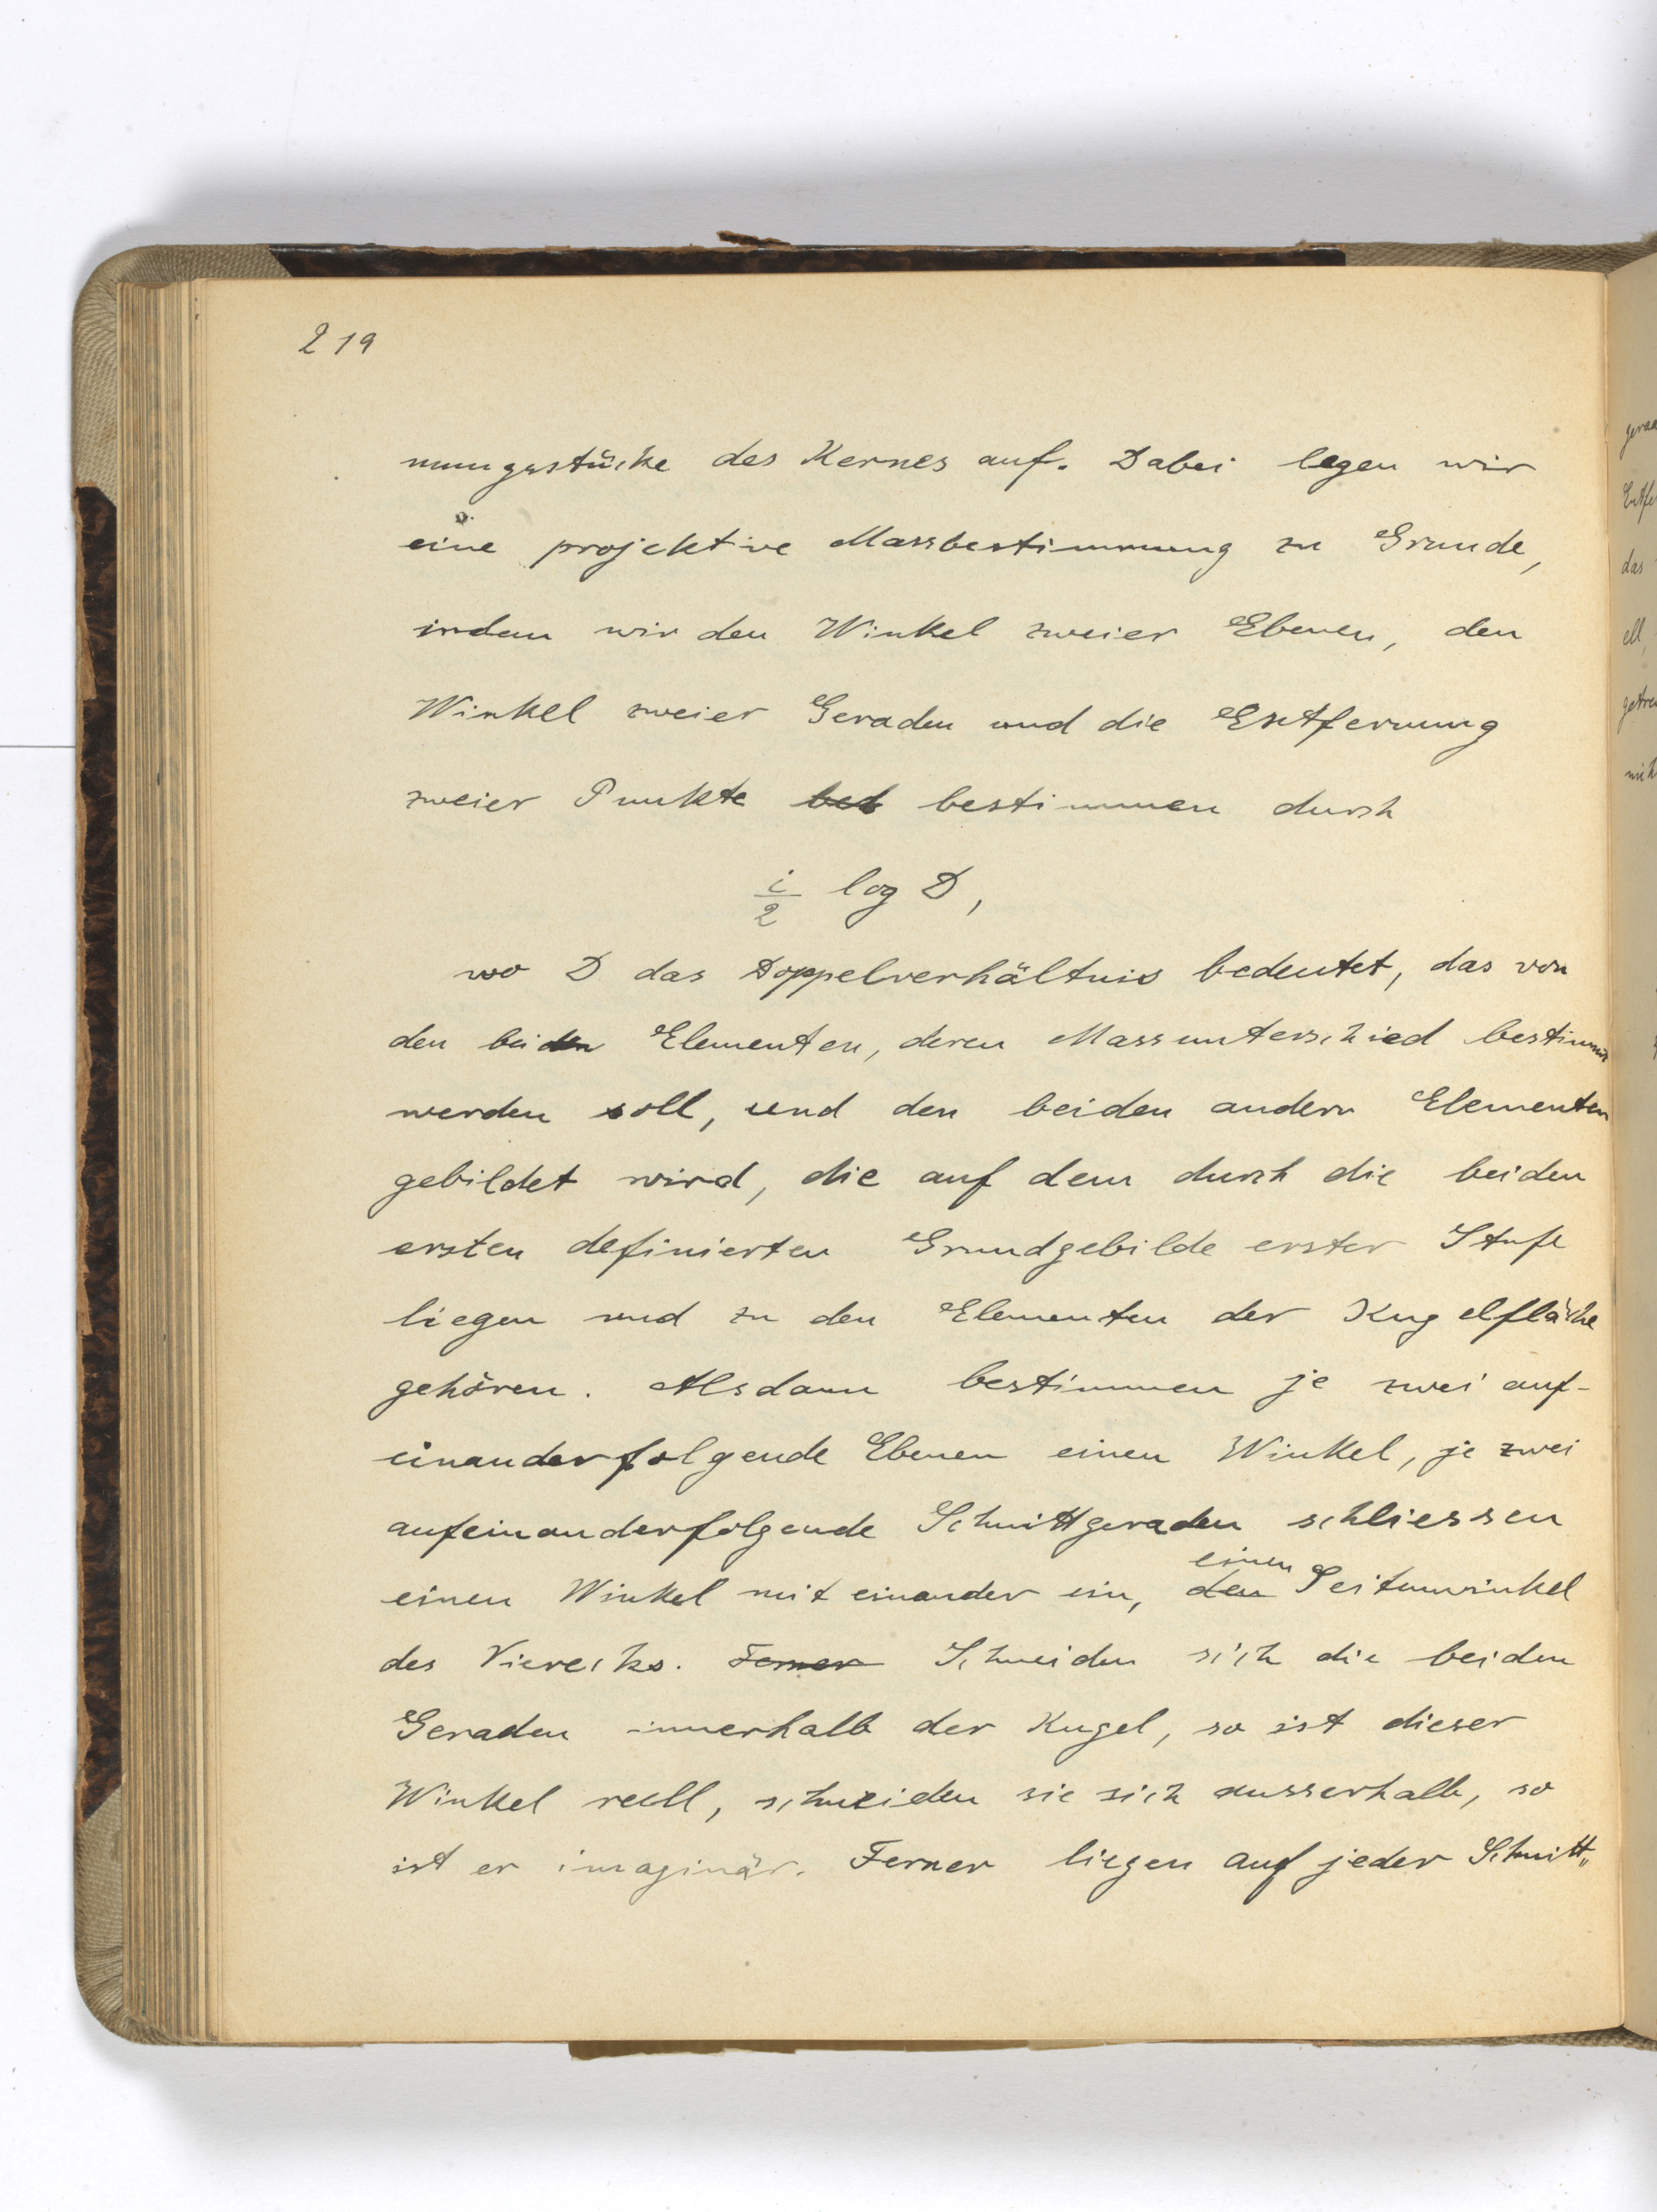 219
nungsstücke des Kernes auf. Dabei legen wir
eine projektive Massbestimmung zu Grunde,
indem wir den Winkel zweier Ebenen, den
Winkel zweier Geraden und die Entfernung
zweier Punkte bestimmen durch
i/2 log D,
wo D das Doppelverhältnis bedeutet, das von
den beiden Elementen, deren Massunterschied bestimmt
werden soll, und den beiden andern Elementen
gebildet wird, die auf dem durch die beiden
ersten definierten Grundgebilde erster Stufe
liegen und zu den Elementen der Kugelfläche
gehören. Alsdann bestimmen je zwei auf-
einanderfolgende Ebenen einen Winkel, je zwei
aufeinanderfolgende Schnittgeraden schliessen
einen Winkel mit einander ein, den einen Seitenwinkel
des Vierecks. Ferner Schneiden sich die beiden
Geraden innerhalb der Kugel, so ist dieser
Winkel reell, schneiden sie sich ausserhalb, so
ist er imaginär. Ferner liegen auf jeder Schnitt„